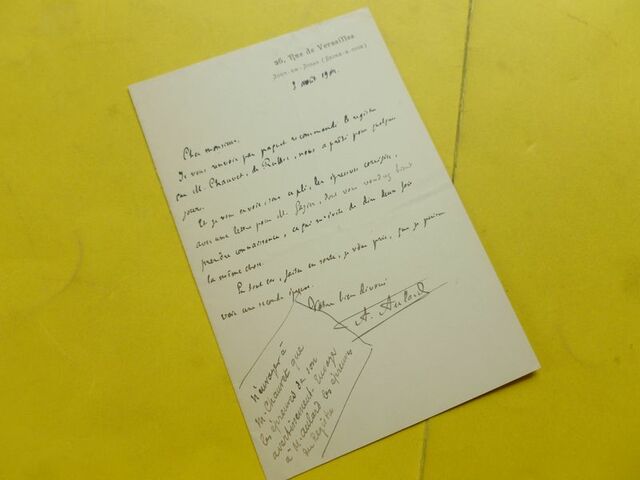 26, Rue de Versailles
Jouy-en-Josas (Seine-&-Oise)
Cher monsieur,
Je vous renvoie par paquet recommandé le registre
que M. Chauvet, de Ruffec, nous a prêté pour quelques
jours.
Et je vous envoie, sous ce pli, les épreuves corrigées,
avec une lettre pour M. dont vous voudrez bien
prendre connaissance, ce qui m'évite de dire deux fois
la même chose.
En tout cas, faites en sorte, je vous prie, que je puisse
voir une seconde épreuve.
Votre bien dévoué
A. Aulard
N'envoyer à
M. Chauvet que
les épreuves de son
avertissement. Envoyer
à M. Aulard les épreuves
du Registre